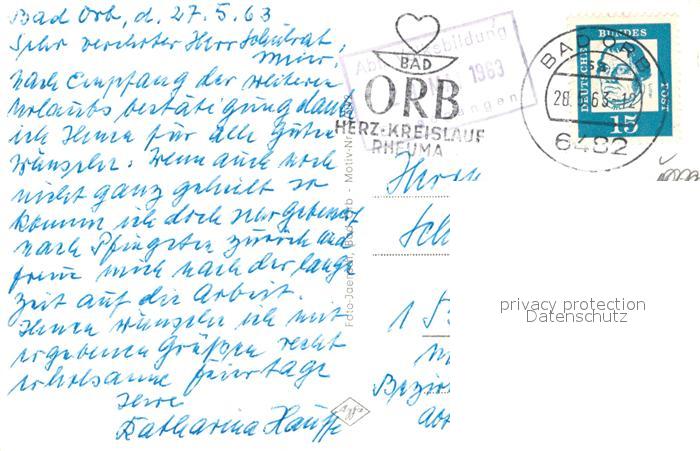 Bad Orb, d. 27.5.63
Sehr verehrter Herr Schulrat,
nach Empfang der weiteren
Urlaubsbestätigung danke
ich Ihnen für alle Güte
Wünsche. Wenn auch noch
nicht ganz geheilt so
komme ich doch
nach Pfingsten zurück und
freue mich nach der langen
Zeit auf die Arbeit.
Ihnen wünsche ich mit
ergebenen Grüßen recht
erholsame Feiertage
Ihre
Katharina Hauffe
BAD
ORB
HERZ-KREISLAUF
RHEUMA
1963
BAD ORB
6482
DEUTSCHE BUNDESPOST
15
Herrn
Sch
1
Bezir
Foto-Jaeger, Bad Orb - Motiv-Nr.
Agfa
privacy protection
Datenschutz